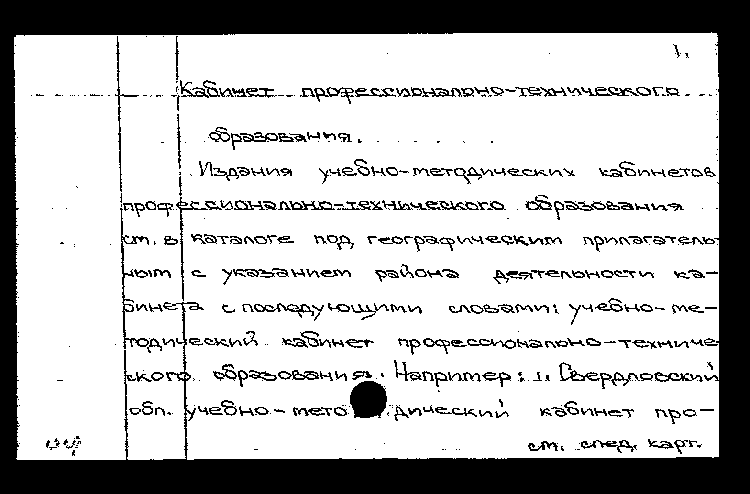 1.
Кабинет профессионально-технического
образования.
Издания учебно-методических кабинетов
профессионально-технического образования
см. в каталоге под географическим прилагатель-
ным с указанием района деятельности ка-
бинета с последующими словами: учебно-ме-
тодический кабинет профессионально-техниче-
ского образования. Например: 1. Свердловский
обл. учебно-методический кабинет про-
см. след. карт.